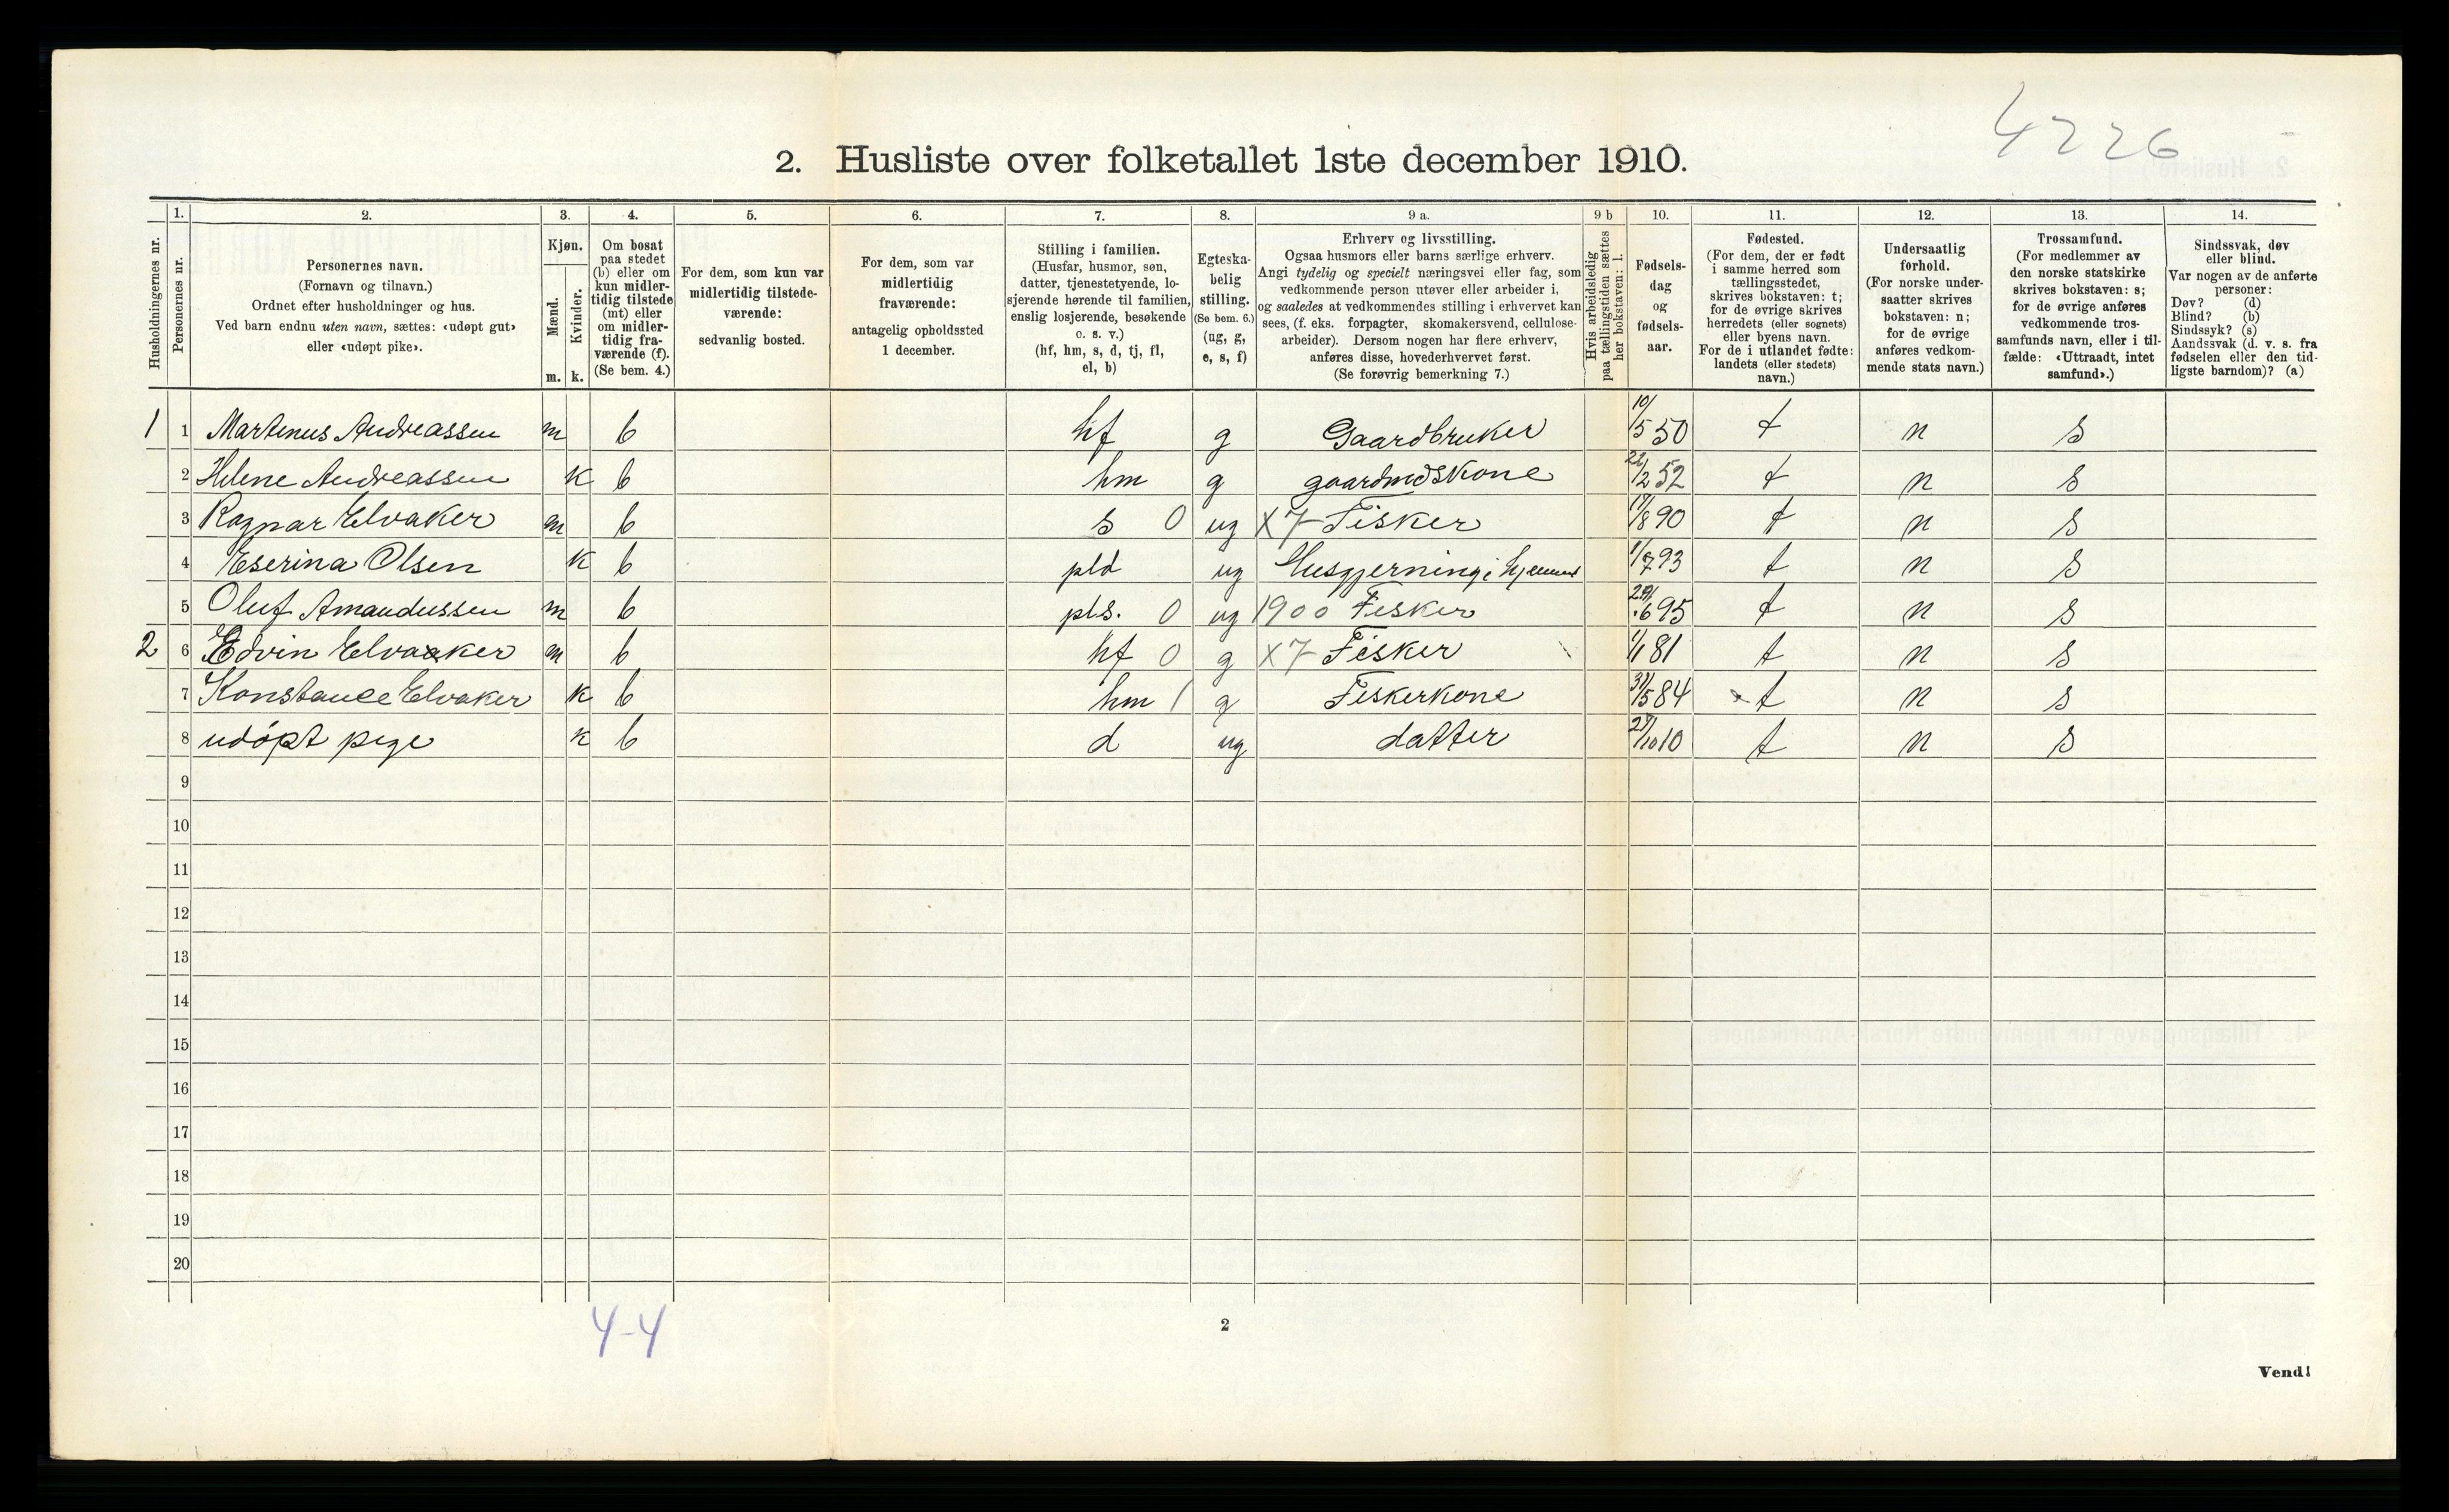 4226
2. Husliste over folketallet 1ste december 1910.
Husholdningernes nr.
1.
Personernes nr.
2.
Personernes navn.
(Fornavn og tilnavn.)
Ordnet efter husholdninger og hus.
Ved barn endnu uten navn, sættes: «udøpt gut»
eller «udøpt pike».
3.
Kjøn.
Mænd.
m.
Kvinder.
k.
4.
Om bosat
paa stedet
(b) eller om
kun midler-
tidig tilstede
(mt) eller
om midler-
tidig fra-
værende (f).
(Se bem. 4.)
5.
For dem, som kun var
midlertidig tilstede-
værende:
sedvanlig bosted.
6.
For dem, som var
midlertidig
fraværende:
antagelig opholdssted
1 december.
7.
Stilling i familien.
(Husfar, husmor, søn,
datter, tjenestetyende, lo-
sjerende hørende til familien,
enslig losjerende, besøkende
o. s. v.)
(hf, hm, s, d, tj, fl,
el, b)
8.
Egteska-
belig
stilling.
(Se bem. 6.)
(ug, g,
e, s, f)
9 a.
Erhverv og livsstilling.
Ogsaa husmors eller barns særlige erhverv.
Angi tydelig og specielt næringsvei eller fag, som
vedkommende person utøver eller arbeider i,
og saaledes at vedkommendes stilling i erhvervet kan
sees, (f. eks. forpagter, skomakersvend, cellulose-
arbeider). Dersom nogen har flere erhverv,
anføres disse, hovederhvervet først.
(Se forøvrig bemerkning 7.)
9 b
Hvis arbeidsledig
paa tællingstiden sættes
her bokstaven: l.
10.
Fødsels-
dag
og
fødsels-
aar.
11.
Fødested.
(For dem, der er født
i samme herred som
tællingsstedet,
skrives bokstaven: t;
for de øvrige skrives
herredets (eller sognets)
eller byens navn.
For de i utlandet fødte:
landets (eller stedets)
navn.)
12.
Undersaatlig
forhold.
(For norske under-
saatter skrives
bokstaven: n;
for de øvrige
anføres vedkom-
mende stats navn.)
13.
Trossamfund.
(For medlemmer av
den norske statskirke
skrives bokstaven: s;
for de øvrige anføres
vedkommende tros-
samfunds navn, eller i til-
fælde: «Uttraadt, intet
samfund».)
14.
Sindssvak, døv
eller blind.
Var nogen av de anførte
personer:
Døv? (d)
Blind? (b)
Sindssyk? (s)
Aandssvak (d. v. s. fra
fødselen eller den tid-
ligste barndom)? (a)
1 1 Martenus Andreassen m b hf g Gaardbruker 10/5 50 t n s
2 Helene Andreassen k b hm g gaardmdskone 22/2 52 t n s
3 Ragnar Elvaker m b s 0 ug X7 Fisker 17/8 90 t n s
4 Eserina Olsen k b pld ug Husgjerning i hjemmet 1/7 93 t n s
5 Oluf Amandussen m b pls. 0 ug 1900 Fisker 29/6 95 t n s
2 6 Edvin Elvaker m b hf 0 g X7 Fisker 1/1 81 t n s
7 Konstance Elvaker k b hm 1 g Fiskerkone 31/5 84 t n s
8 udöpt pige k b d ug datter 27/10 10 t n s
9
10
11
12
13
14
15
16
17
18
19
20
4-4
2
Vend!